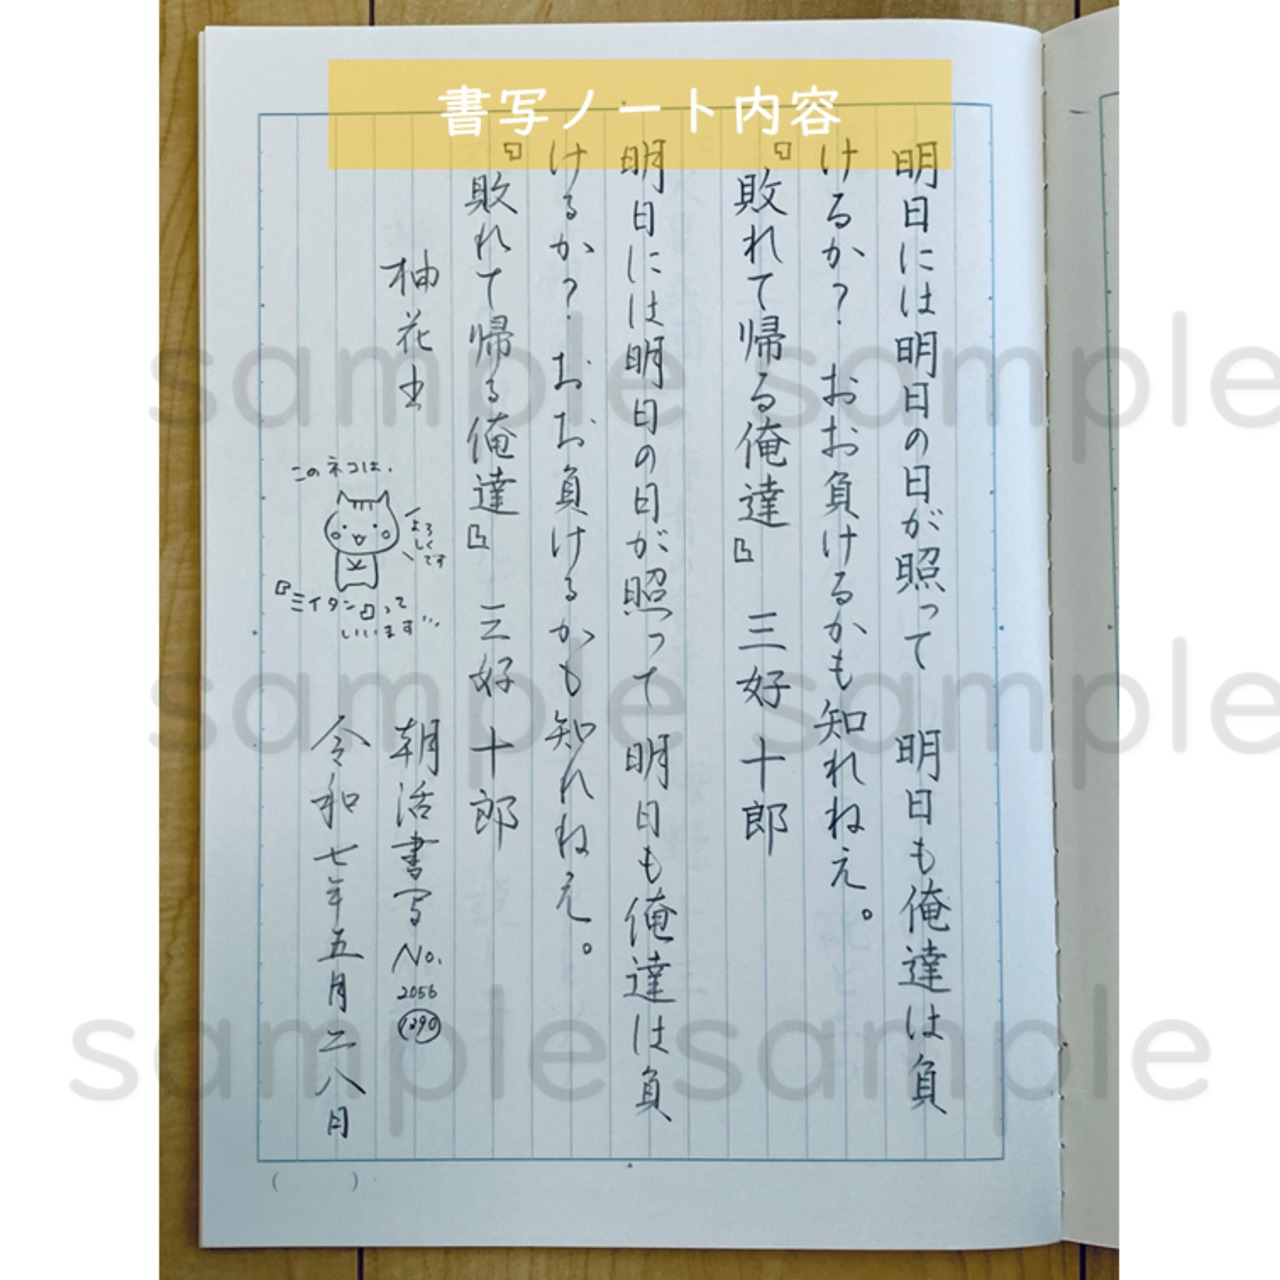 書写ノート内容
明日には明日の日が照って　明日も俺達は負
けるか？　おお負けるかも知れねえ。
『敗れて帰る俺達』　三好十郎
明日には明日の日が照って　明日も俺達は負
けるか？　おお負けるかも知れねえ。
『敗れて帰る俺達』　三好十郎
柚花
朝活書写 No. 2056 1290
このネコは、
よろしくです
『ミイタン』って
いいます…
令和七年五月二八日
sample sample
sample sample
sample sample